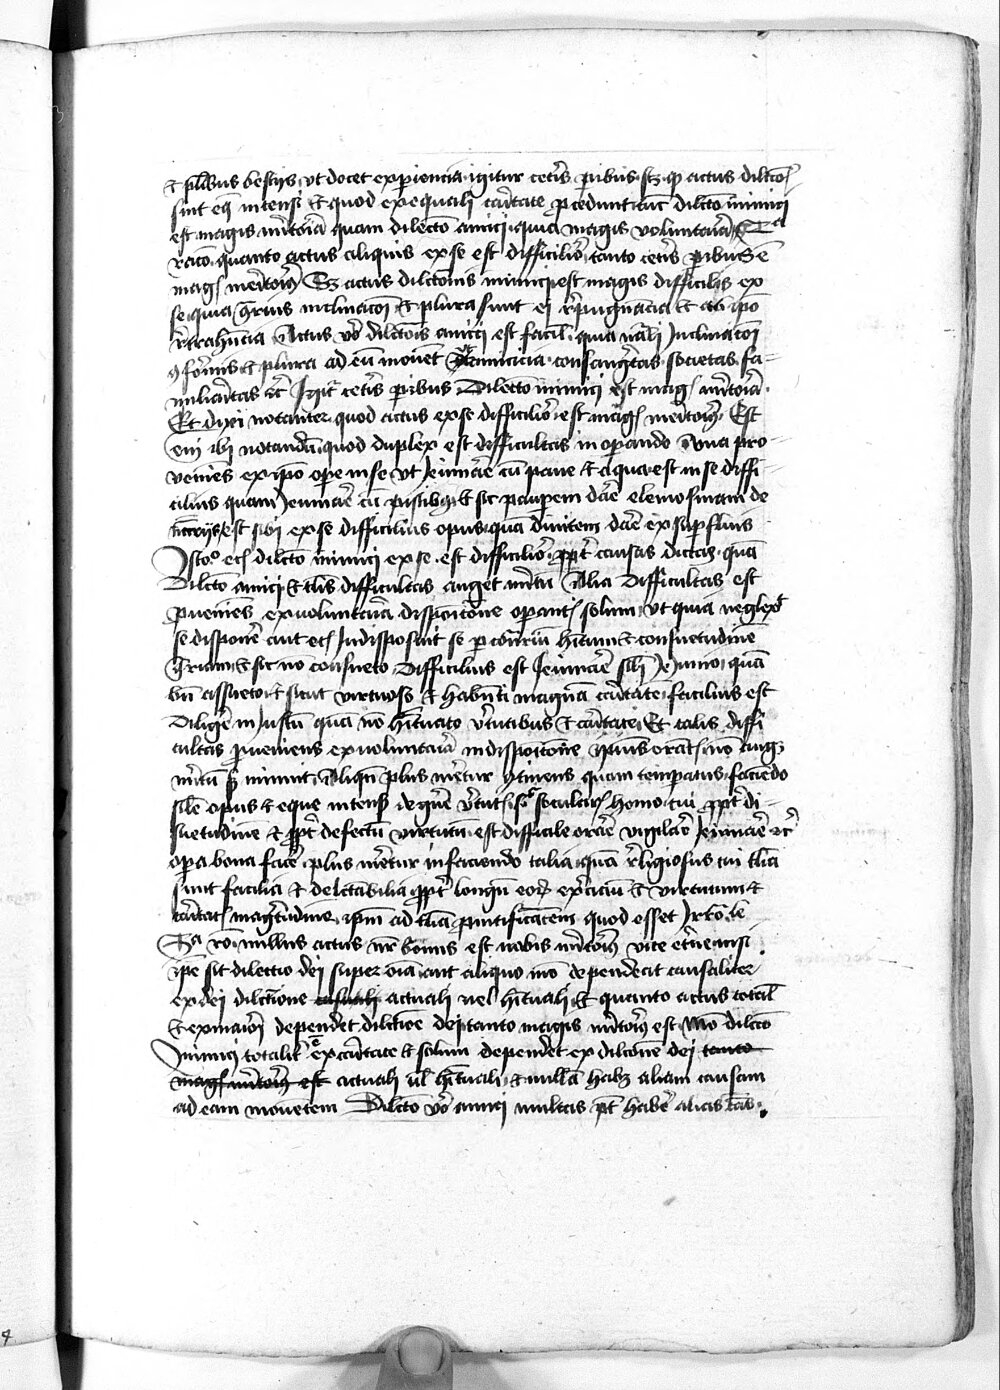 et pluribus bestijs ut docet experiencia igitur ceteris paribus scz quod actus dilectionis
sint eque intensi et quod ex equali caritate procedunt tunc dilectio inimici
est magis meritoria quam dilectio amici quia magis voluntaria
racio quanto actus aliquis ex se est difficilior tanto ceteris paribus est
magis meritorius Sed actus dilectionis inimici est magis difficilis ex
se quia contrarius inclinacioni et plura sunt ei repugnancia et ab ipso
retrahencia Actus vero dilectionis amici est facilis quia naturali Inclinacioni
conformis et plura ad eum movent ut amicicia consangwinitas societas fa-
miliaritas etc Igitur ceteris paribus Dilectio inimici est magis meritoria
Et dixi notanter quod actus ex se difficilior est magis meritorius Est
enim ibi notandum quod duplex est difficultas in operando Una pro-
veniens ex ipso opere in se ut Jeiunare cum pane et aqua est in se diffi-
cilius quam Jeiunare cum piscibus et sic pauperem dare elemosinam de
necessarijs est sibi ex se difficilius opus quam divitem dare ex superfluis
Isto modo eciam dilectio inimici ex se est difficilior propter causas dictas quam
Dilectio amici et talis difficultas auget meritum Alia Difficultas est
proveniens ex voluntaria disposicione operantis solum ut quia neglexit
se disponere aut eciam Indisposuit se per contrarium habitum et consuetudinem
contrariam et sic non consueto Difficilius est Jeiunare simili Jeiunio quam
bene assueto et sicut virtuoso et habenti magnam caritatem facilius est
Diligere inimicum quam non habituato virtutibus et caritate Et talis diffi
cultas proveniens ex voluntaria indisposicione ipsius operantis non auget
meritum sed minuit Aliquando plus meretur continens quam temperatus faciendo
simile opus et eque intensum de genere virtutis sicut secularis homo cui propter dis-
suetudinem et propter defectum virtutum est difficile orare vigilare Jeiunare etc
opera bona facere plus meretur in faciendo talia quam religiosus cui talia
sunt facilia et delectabilia propter longum eorum exercicium et virtutum et
caritatis magnitudinem ipsum ad talia promptificantem quod esset Irracionabile
racio nullus actus noster bonus est nobis meritorius vite eterne nisi
ipse sit dilectio dei super omnia aut aliquo modo dependeat causaliter
ex dei dilectione actuali vel habituali et quanto actus totalius
et ex maiori dependet dilectione dei tanto magis meritorius est Modo dilectio
Inimici totaliter est ex caritate et solum dependet ex dilectione dei tanto
magis meritorius est actuali vel habituali et nullam habet aliam causam
ad eam moventem Dilectio vero amici multas potest habere alias causas